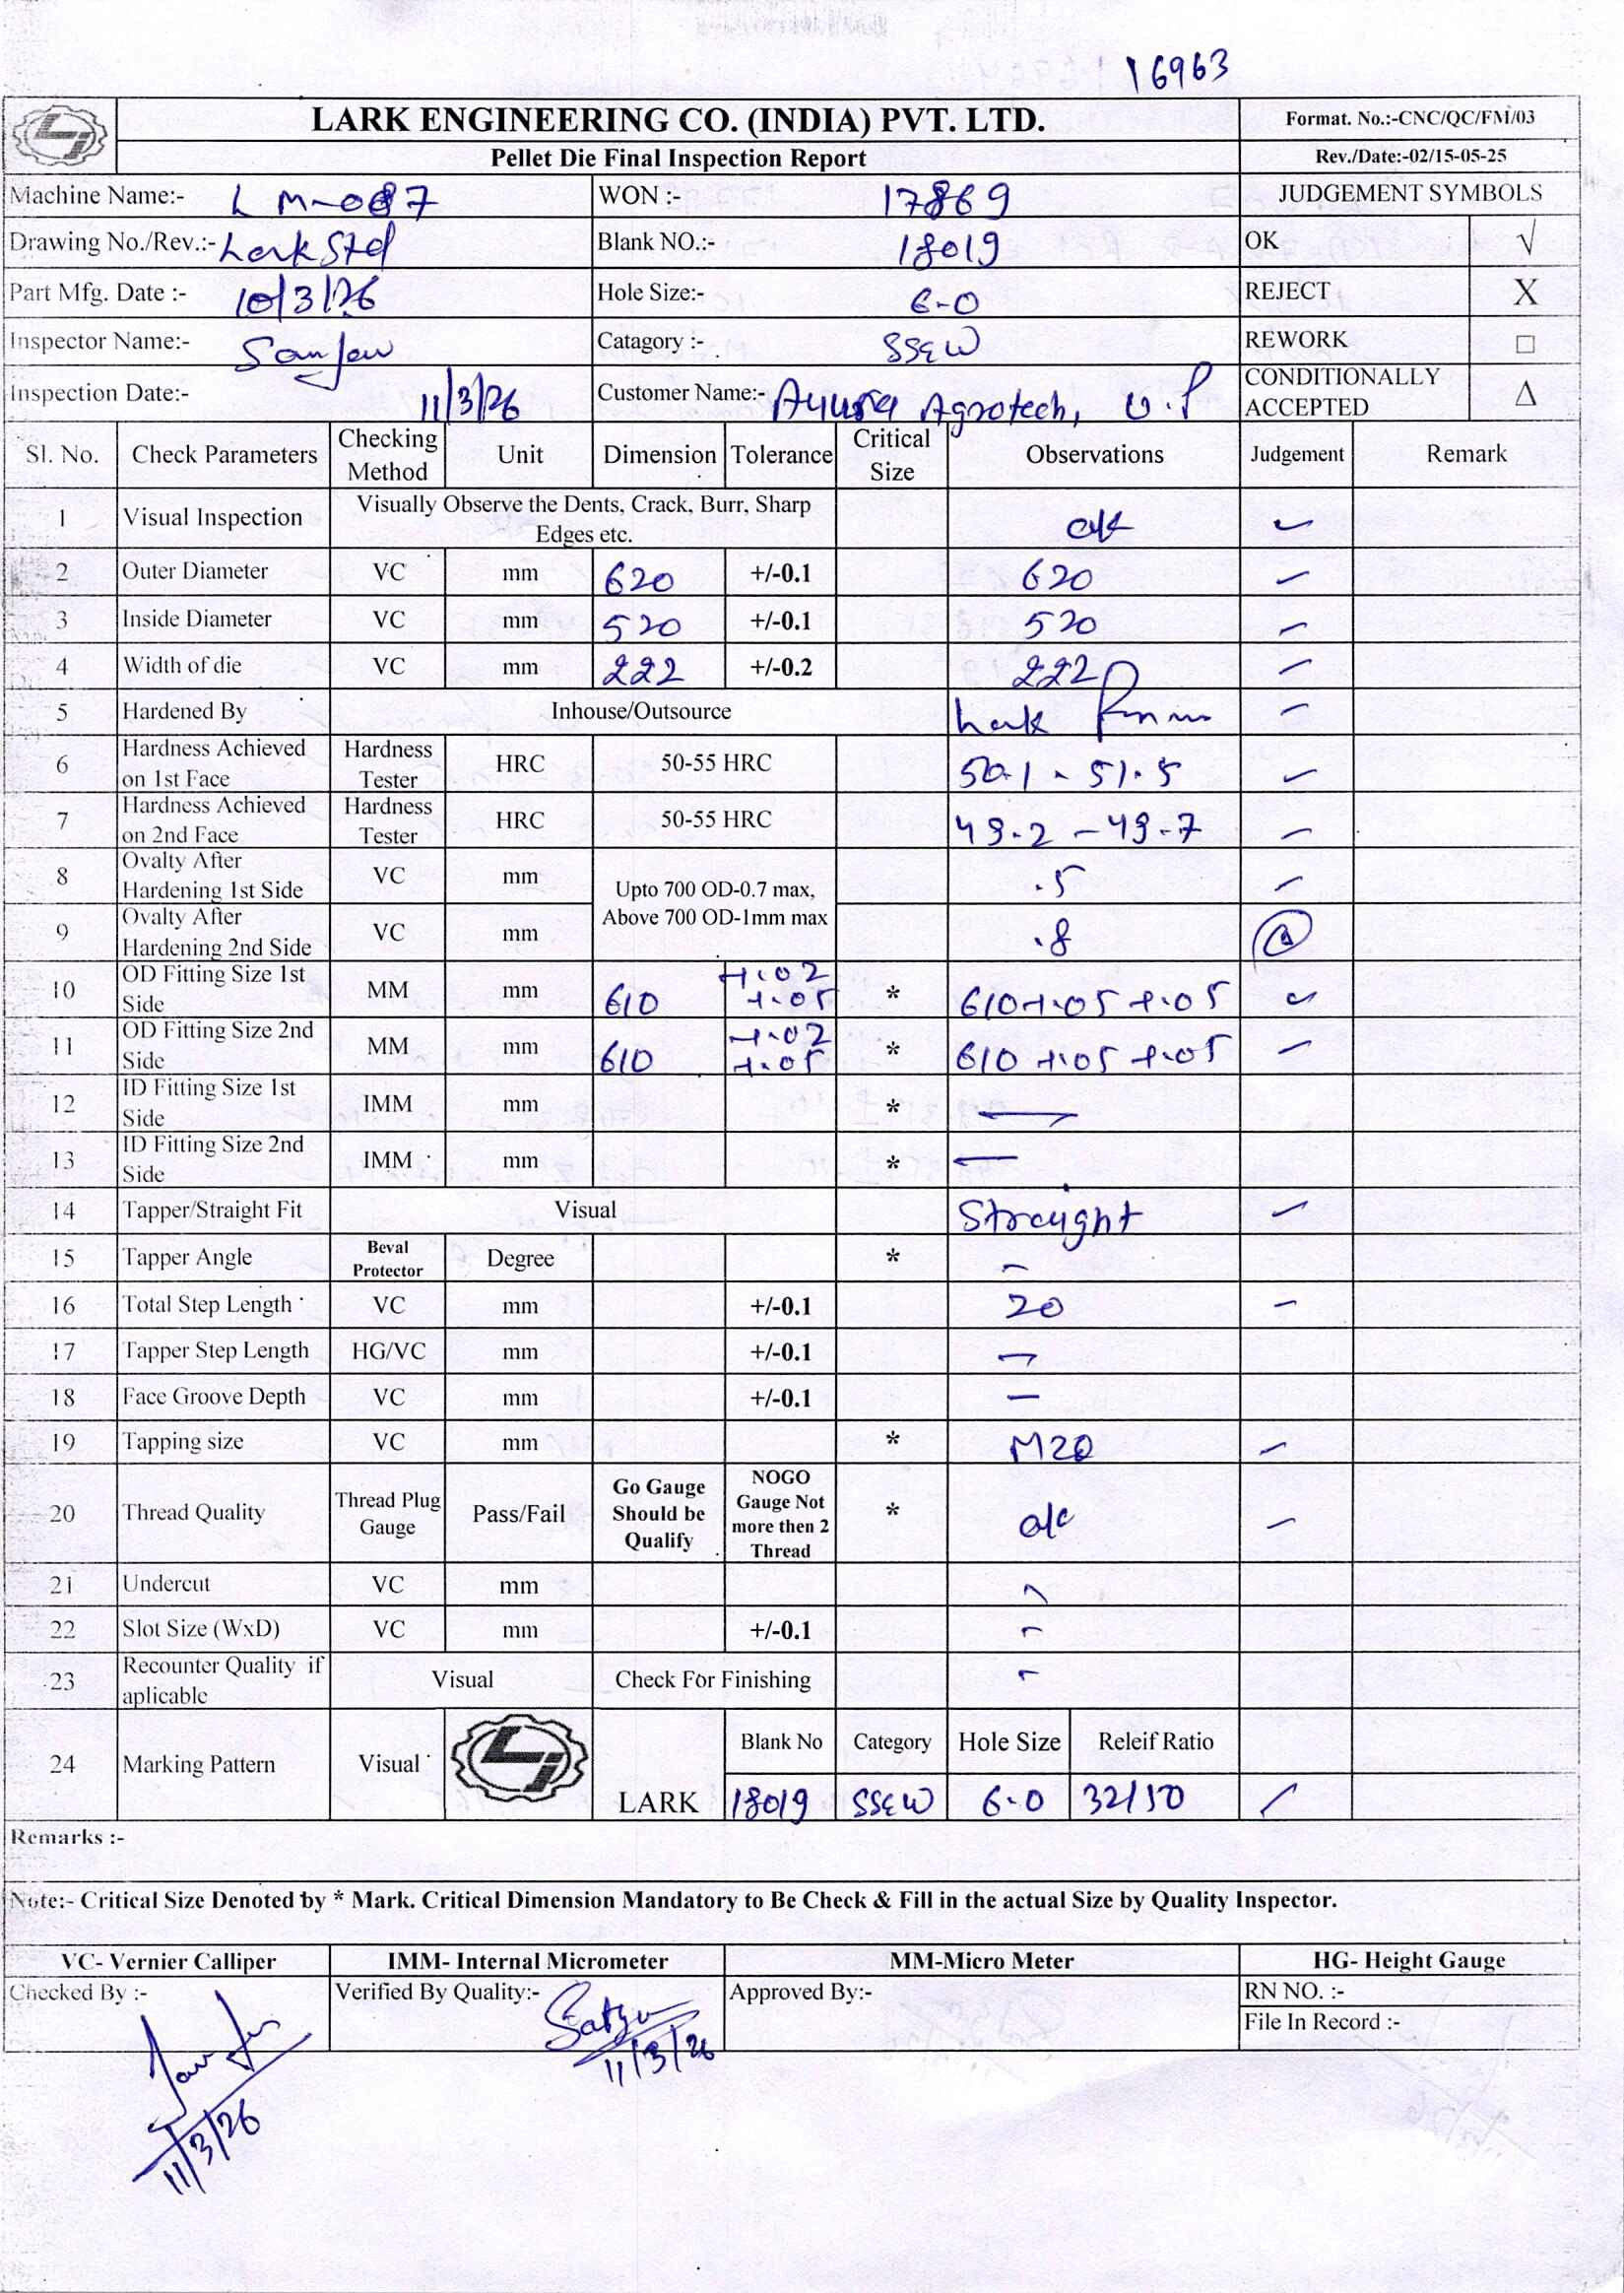 16963
LARK ENGINEERING CO. (INDIA) PVT. LTD. Format. No.:-CNC/QC/FM/03
Pellet Die Final Inspection Report Rev./Date:-02/15-05-25
Machine Name:- LM-087 WON :- 17869 JUDGEMENT SYMBOLS
Drawing No./Rev.:- Lark Std Blank NO.:- 18019 OK √
Part Mfg. Date :- 10/3/26 Hole Size:- 6-0 REJECT X
Inspector Name:- Catagory :- SSEW REWORK □
Inspection Date:- 11/3/26 Customer Name:- Agrotech, U.P CONDITIONALLY ACCEPTED Δ
Sl. No. Check Parameters Checking Method Unit Dimension Tolerance Critical Size Observations Judgement Remark
1 Visual Inspection Visually Observe the Dents, Crack, Burr, Sharp Edges etc. ok ✓
2 Outer Diameter VC mm 620 +/-0.1 620 ✓
3 Inside Diameter VC mm 520 +/-0.1 520 ✓
4 Width of die VC mm 222 +/-0.2 222 ✓
5 Hardened By Inhouse/Outsource Lark ✓
6 Hardness Achieved on 1st Face Hardness Tester HRC 50-55 HRC 50.1 - 51.5 ✓
7 Hardness Achieved on 2nd Face Hardness Tester HRC 50-55 HRC 49.2 - 49.7 ✓
8 Ovalty After Hardening 1st Side VC mm Upto 700 OD-0.7 max, Above 700 OD-1mm max .5 ✓
9 Ovalty After Hardening 2nd Side VC mm .8
10 OD Fitting Size 1st Side MM mm 610 +.02 +.05 * 610+.05 +.05 ✓
11 OD Fitting Size 2nd Side MM mm 610 +.02 +.05 * 610 +.05 +.05 ✓
12 ID Fitting Size 1st Side IMM mm * —
13 ID Fitting Size 2nd Side IMM mm * —
14 Tapper/Straight Fit Visual Straight ✓
15 Tapper Angle Beval Protector Degree * -
16 Total Step Length VC mm +/-0.1 20 ✓
17 Tapper Step Length HG/VC mm +/-0.1 -
18 Face Groove Depth VC mm +/-0.1 -
19 Tapping size VC mm * M20 ✓
20 Thread Quality Thread Plug Gauge Pass/Fail Go Gauge Should be Qualify NOGO Gauge Not more then 2 Thread * o/c ✓
21 Undercut VC mm -
22 Slot Size (WxD) VC mm +/-0.1 -
23 Recounter Quality if aplicable Visual Check For Finishing -
24 Marking Pattern Visual LARK Blank No Category Hole Size Releif Ratio
18019 SSEW 6-0 32/50 ✓
Remarks :-
Note:- Critical Size Denoted by * Mark. Critical Dimension Mandatory to Be Check & Fill in the actual Size by Quality Inspector.
VC- Vernier Calliper IMM- Internal Micrometer MM-Micro Meter HG- Height Gauge
Checked By :- Verified By Quality:- Approved By:- RN NO. :-
File In Record :-
11/3/26
11/3/26